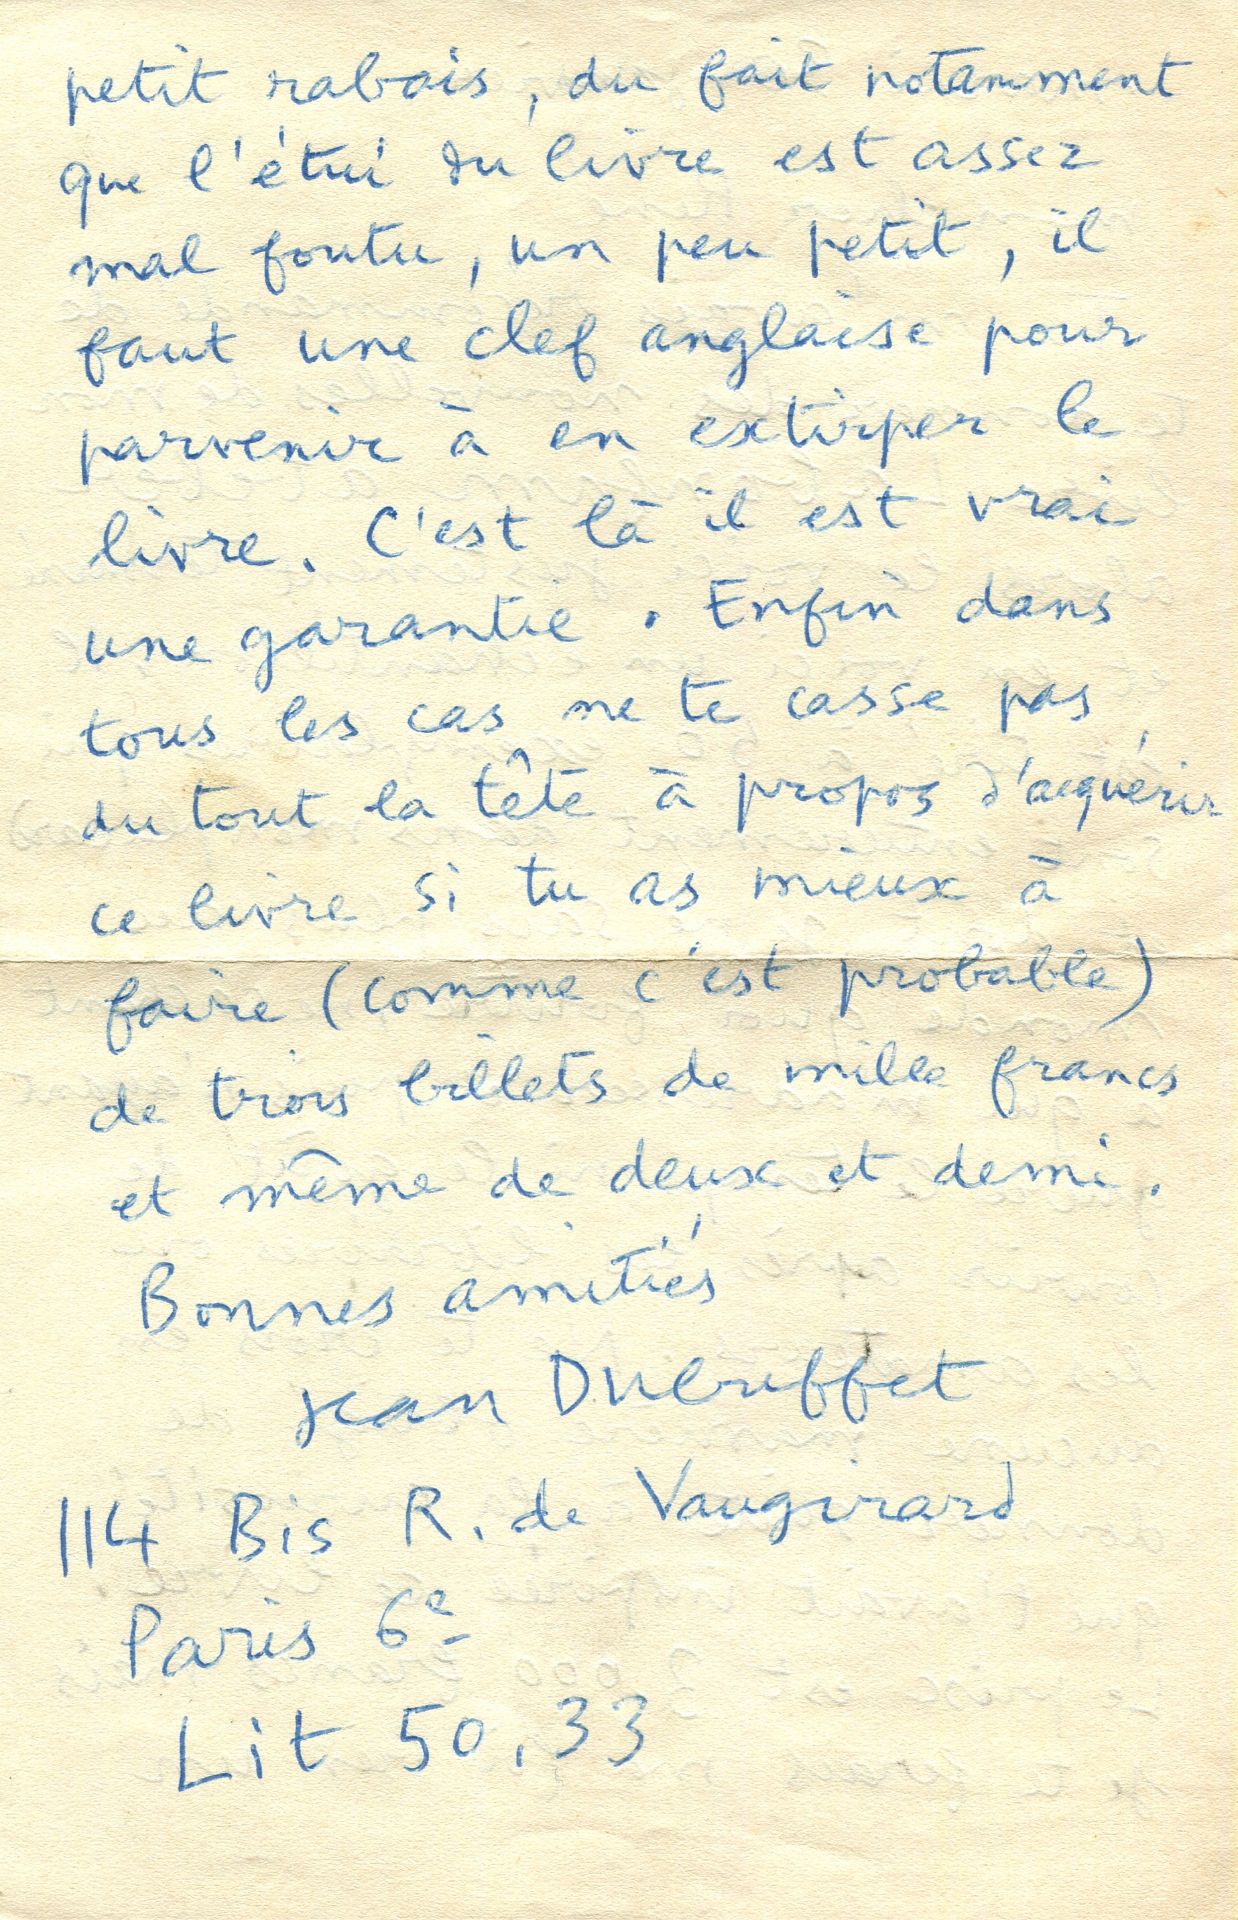 petit rabais, du fait notamment
que l'étui du livre est assez
mal foutu, un peu petit, il
faut une clef anglaise pour
parvenir à en extirper le
livre. C'est là il est vrai
une garantie. Enfin dans
tous les cas ne te casse pas
du tout la tête à propos d'acquérir
ce livre si tu as mieux à
faire (comme c'est probable)
de trois billets de mille francs
et même de deux et demi.
Bonnes amitiés
Jean Dubuffet
114 Bis R. de Vaugirard
Paris 6e
Lit 50.33